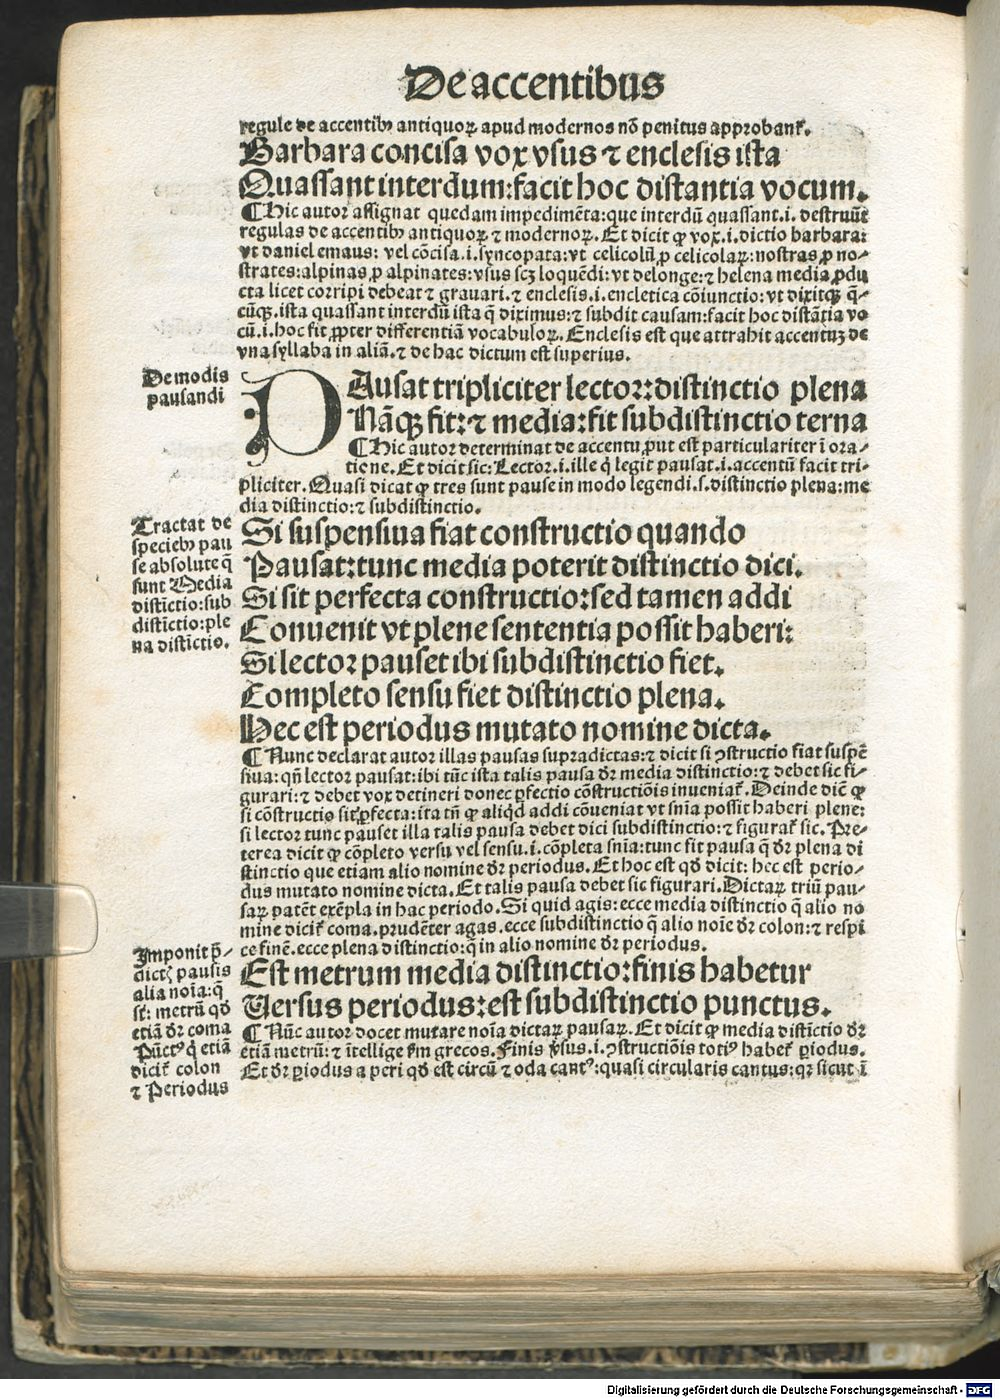 De accentibus
regule de accentibꝰ antiquoꝝ apud modernos nō penitus approbanť.
Barbara concisa vox vsus ⁊ enclesis ista
Quassant interdum:facit hoc distantia vocum.
¶Hic autor assignat quedam impedimēta:que interdū quassant.i. destruūt
regulas de accentibꝰ antiquoꝝ ⁊ modernoꝝ. Et dicit ꝙ vox.i.dictio barbara:
vt daniel emaus: vel cōcisa.i.syncopata: vt celicolū ꝓ celicolaꝝ:nostras ꝓ no⸗
strates:alpinas ꝓ alpinates:vsus scꝫ loquēdi: vt delonge:⁊ helena media ꝓdu
cta licet corripi debeat ⁊ grauari.⁊ enclesis.i.encletica cōiunctio: vt dixitqꝫ q̄⸗
cūqꝫ.ista quassant interdū ista q̄ diximus:⁊ subdit causam:facit hoc distātia vo
cū.i.hoc fit ꝓpter differentiā vocabuloꝝ. Enclesis est que attrahit accentuꝫ de
vna syllaba in aliā.⁊ de hac dictum est superius.
De modis
pausandi
PAusat tripliciter lector:distinctio plena
Nāqꝫ fit:⁊ media:fit subdistinctio terna
¶Hic autor determinat de accentu ꝓut est particulariter ī ora⸗
tione. Et dicit sic: Lector.i.ille q̇ legit pausat.i.accentū facit tri⸗
pliciter. Quasi dicat ꝙ tres sunt pause in modo legendi.s.distinctio plena:me
dia distinctio:⁊ subdistinctio.
Tractat de
speciebꝰ pau
se absolute q̄
sunt Media
distīctio:sub
distīctio:ple
na distīctio.
Si suspensiua fiat constructio quando
Pausat:tunc media poterit distinctio dici.
Si sit perfecta constructio:sed tamen addi
Conuenit vt plene sententia possit haberi:
Si lector pauset ibi subdistinctio fiet.
Completo sensu fiet distinctio plena.
Hec est periodus mutato nomine dicta.
¶Nunc declarat autor illas pausas supradictas:⁊ dicit si ꝯstructio fiat suspē
siua: qn̄ lector pausat:ibi tūc ista talis pausa dr̄ media distinctio:⁊ debet sic fi⸗
gurari:⁊ debet vox detineri donec ꝑfectio cōstructiōis inueniať. Deinde dic̄ ꝙ
si cōstructio sit ꝑfecta:ita tn̄ ꝙ aliqd̓ addi cōueniat vt sn̄ia possit haberi plene:
si lector tunc pauset illa talis pausa debet dici subdistinctio:⁊ figurať sic. Pre⸗
terea dicit ꝙ cōpleto versu vel sensu.i.cōpleta sn̄ia:tunc fit pausa q̄ dr̄ plena di
stinctio que etiam alio nomine dr̄ periodus. Et hoc est qd̓ dicit: hec est perio⸗
dus mutato nomine dicta. Et talis pausa debet sic figurari. Dictaꝝ triū pau⸗
saꝝ patēt exēpla in hac periodo. Si quid agis:ecce media distinctio q̄ alio no
mine dicit᷑ coma. prudēter agas.ecce subdistinctio q̄ alio noīe dr̄ colon:⁊ respi
ce finē.ecce plena distinctio:q̄ in alio nomine dr̄ periodus.
Imponit p̄⸗
dictꝭ pausis
alia noīa:q̄
st̄: metrū qd̓
etiā dr̄ coma
Pūctꝰ q̇ etiā
dicit᷑ colon
⁊ Periodus
Est metrum media distinctio:finis habetur
Versus periodus:est subdistinctio punctus.
¶Nūc autor docet mutare noīa dictaꝝ pausaꝝ. Et dicit ꝙ media distīctio dr̄
etiā metrū: ⁊ ītellige ẜm grecos. Finis ṽsus.i.ꝯstructiōis totiꝰ habet᷑ ꝑiodus.
Et dr̄ ꝑiodus a peri qd̓ est circū ⁊ oda cantꝰ:quasi circularis cantus:qꝛ sicut ī
Digitalisierung gefördert durch die Deutsche Forschungsgemeinschaft - DFG